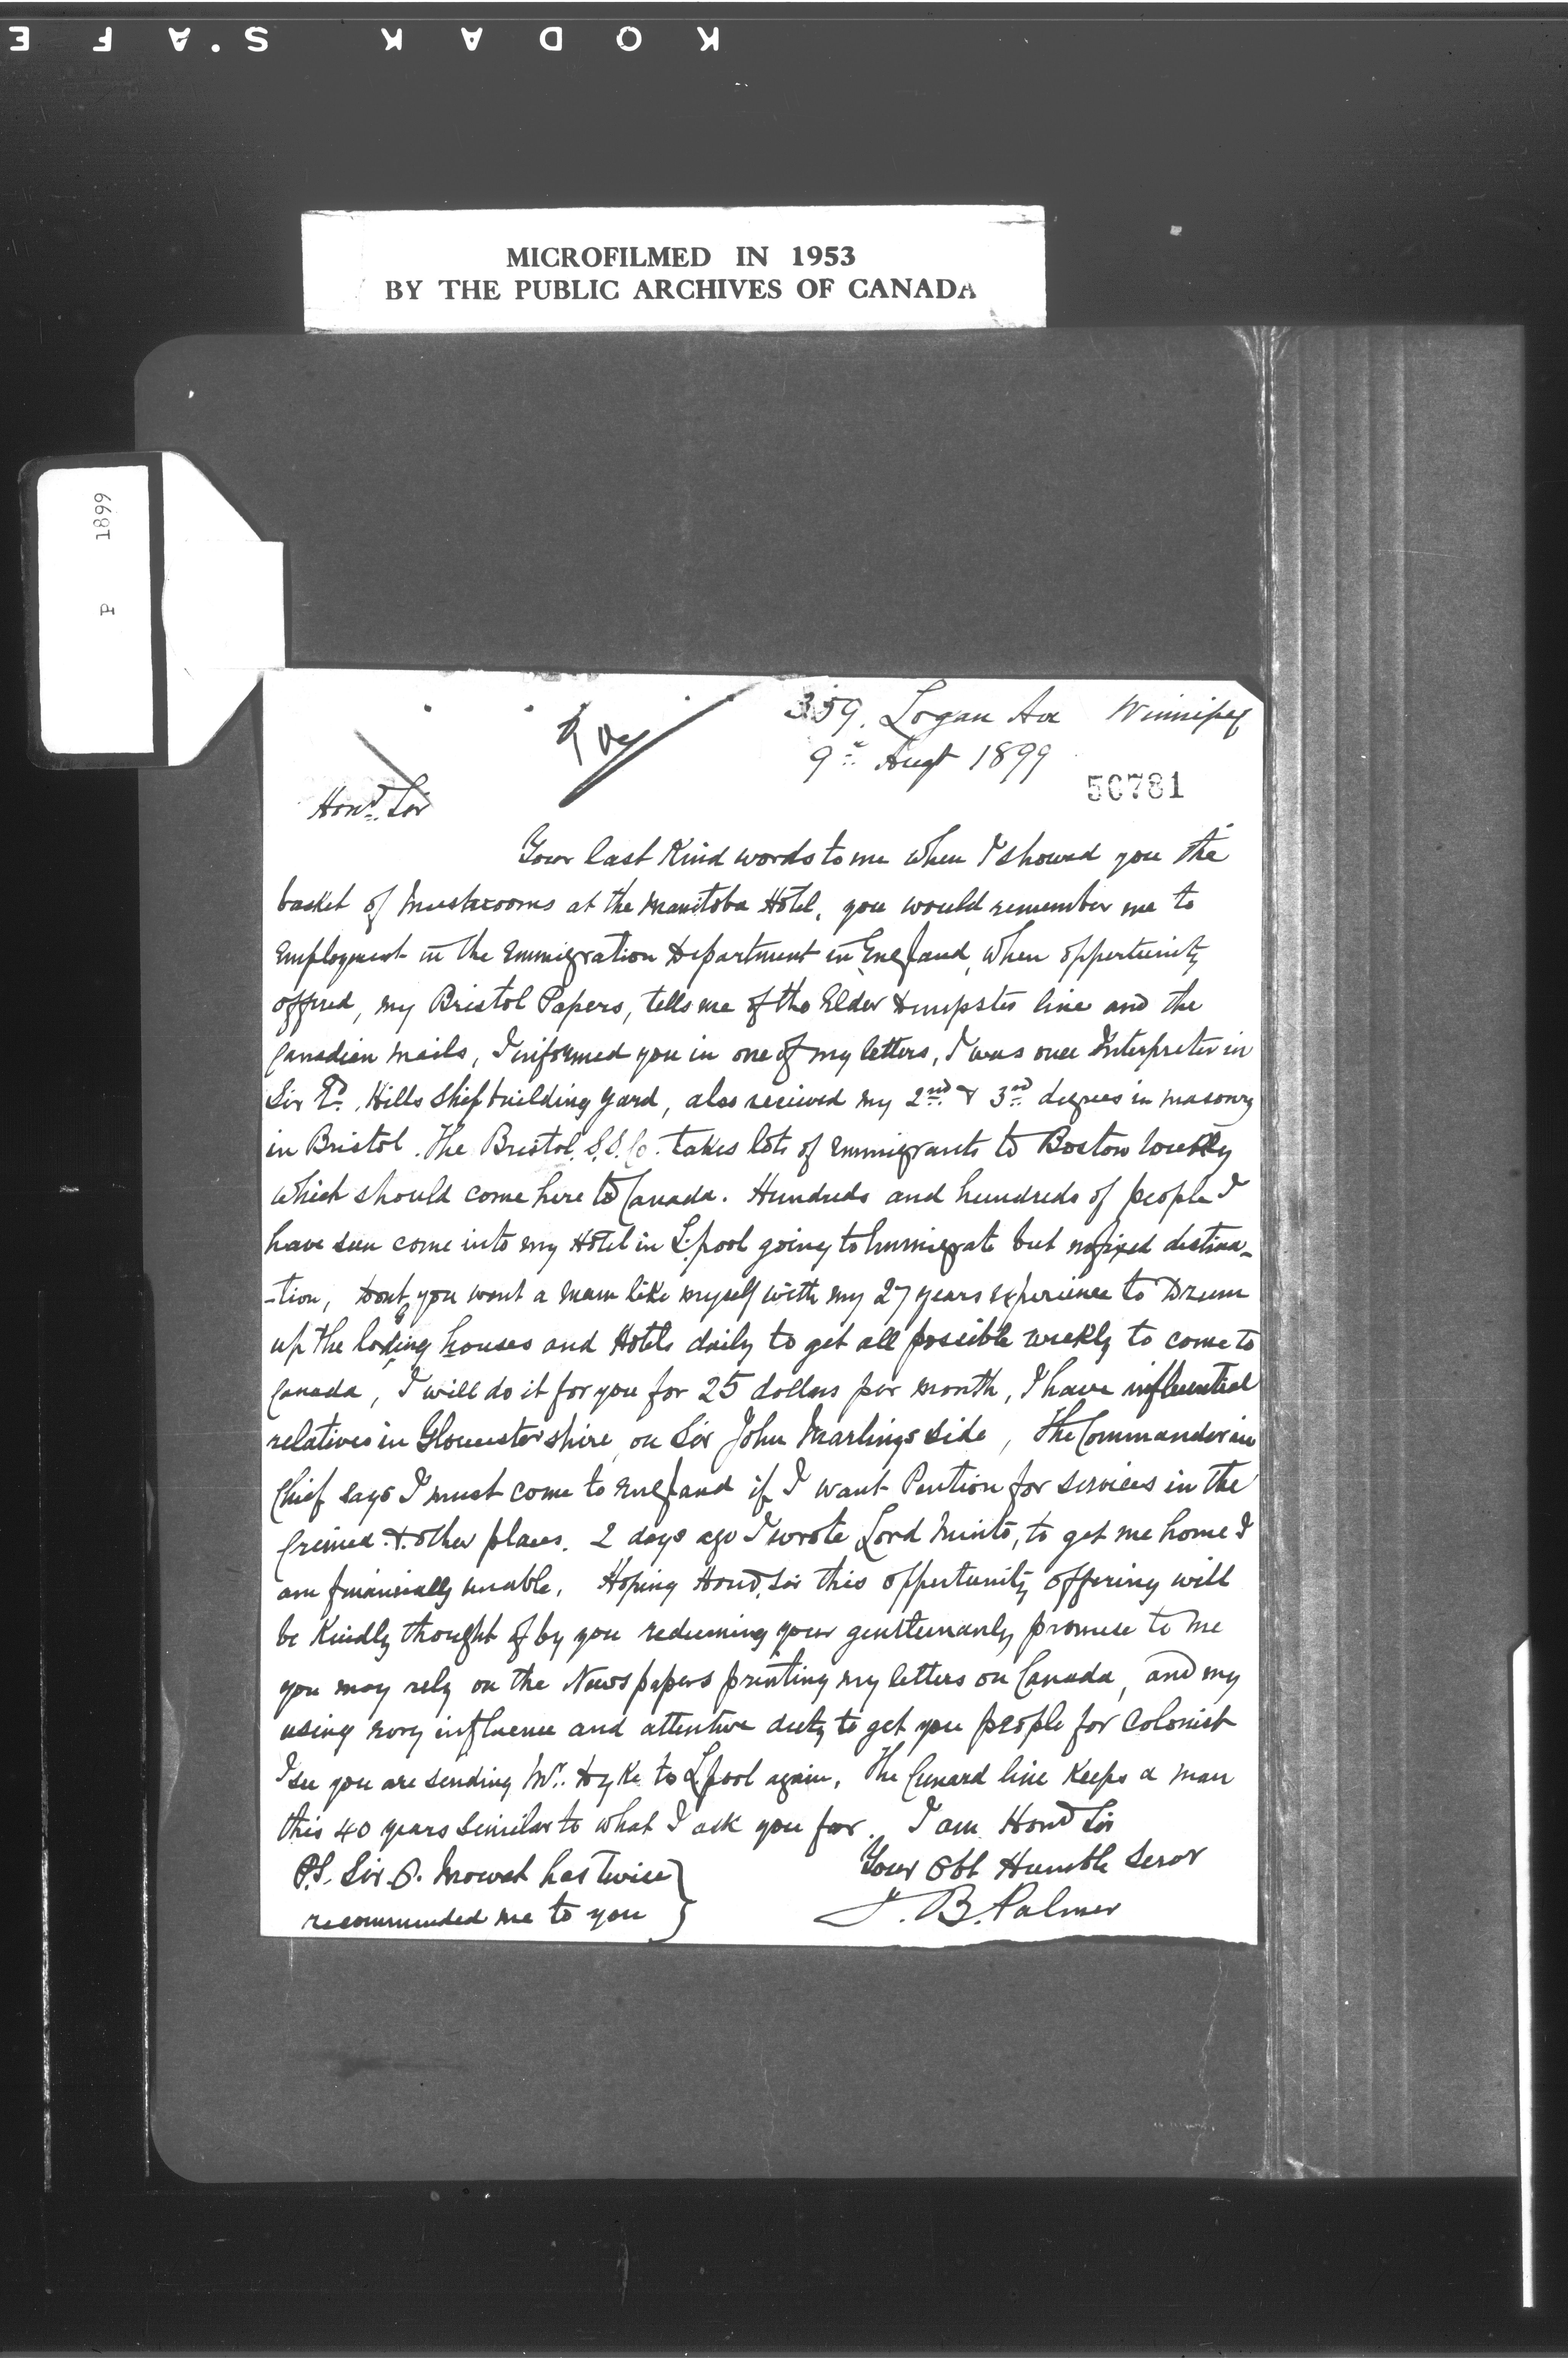 KODAK S.A.F E
MICROFILMED IN 1953
BY THE PUBLIC ARCHIVES OF CANADA
P 1899
359. Logan Av Winnipeg
9th Augt 1899
50781
Hond. Sir
Your last Kind words to me when I showed you the
basket of Mushrooms at the Manitoba Hotel, you would remember me to
employment in the Emmigration Department in England, when oppertunity
offred, my Bristol Papers, tells me of the Elder Dempster line and the
Canadian Mails, I informed you in one of my letters, I was once Interpreter in
Sir Ed. Hills Shipbuilding yard, also recieved my 2nd & 3rd degrees in masonry
in Bristol. The Bristol. S.S. Co. takes lots of Emmigrants to Boston weekly
which should come here to Canada. Hundreds and hundreds of people I
have seen come into my Hotel in L.pool going to Immigrate but no fixed distina-
-tion, Dont you want a man like myself with my 27 years experience to Drum
up the lodging houses and Hotels daily to get all possible weekly to come to
Canada, I will do it for you for 25 dollars per month, I have influential
relatives in Gloucestershire, on Sir John Marlings side, The Commander in
Chief says I must come to England if I want Pention for services in the
Crimea & other places. 2 days ago I wrote Lord Minto, to get me home I
am financially unable, Hoping Hond. Sir this oppertunity offering will
be Kindly thought of by you redeeming your gentlemanly promise to me
you may rely on the Newspapers printing my letters on Canada, and my
using evry influence and attentive duty to get you people for Colonist
I see you are sending Mr. Dyke to L.pool again, The Cunard line Keeps a man
this 40 years similar to what I ask you for. I am Hond Sir
Your Obt Humble Servt
J. B. Palmer
P.S. Sir. O. Mowat has twice
recommended me to you